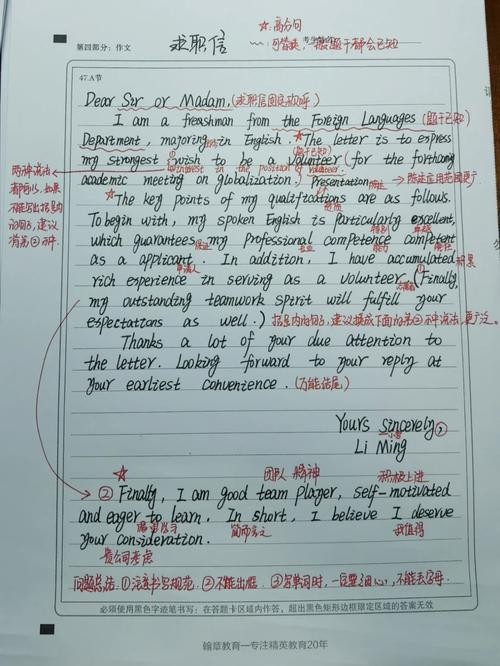 ☆:高分句
第四部分:作文
求职信
~~:可替换,一般题干都会已知
47.A节
Dear Sir or Madam,(求职信固定称呼)
I am a freashman from the Foreign Languages (题干已知)
Department, majoring in English. ☆The letter is to express
(题干已知)
my strongest ①wish to be a volunteer (for the forthcoming
interest in the position of volunteer.
academic meeting on globalization.) Presentation 陈述 → 陈述应用范围更广
两种说法
都可以,如果
不能写出括号内
的句子,建议
背第②种.
☆The key points of my qualifications are as follows.
To begin with, my spoken English is particularly excellent,
特别
which guarantees my professional competence competent
保证
as a applicant. In addition, I have accumulated 积累
申请人
rich experience in serving as a volunteer. ①(Finally,
my outstanding teamwork spirit will fulfill your
espectations as well.) 括号内的句子,建议换成下面的第②种说法,更广泛.
Thanks a lot of your due attention to
the letter. Looking forward to your reply at
your earliest convenience. (万能结尾)
Yours sincerely,
Li Ming
☆ 团队 精神 积极上进
② Finally, I am good team player, self-motivated
and eager to learn. In short, I believe I deserve
渴望学习 简而言之 我值得
your consideration.
贵公司考虑
问题总结:①注意书写规范. ②不能出框. ③写单词时,一定要细心,不能丢字母.
必须使用黑色字迹笔书写:在答题卡区域内作答,超出黑色矩形边框限定区域的答案无效
翰章教育—专注精英教育20年